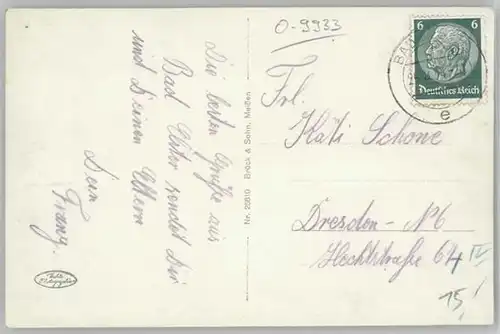 0-9933
Die besten Grüße aus
Bad Elster sendet Dir
und Deinen Eltern
Dein
Franz.
Nr. 22610 Brück & Sohn, Meißen
6 6
Deutsches Reich
BAD
e
Frl.
Käti Schöne
Dresden-N6
Hechtstraße 64 IV
15!
Echte